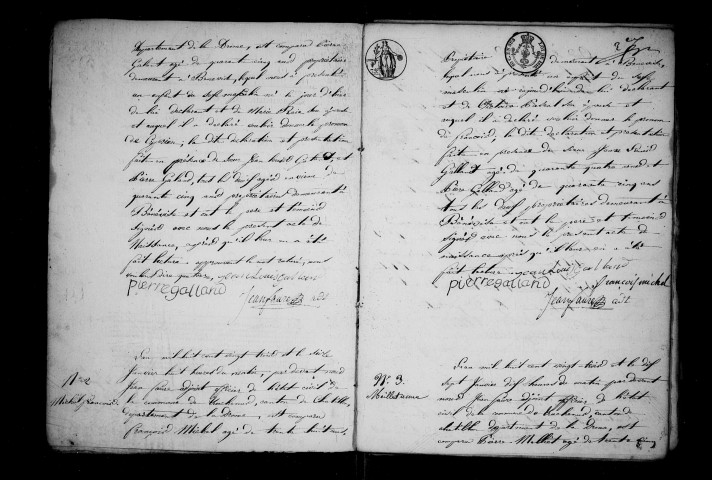 Département de la Drome, est comparu Pierre
Galland agé de quarante cinq ans propriétaire
demeurant à Bénévise, lequel nous a présenté
un enfant de sexe masculin né le jour d'hier
de lui déclarant et de Marie
et auquel il a déclaré vouloir donner le prénom
de les dites déclaration et présentation
fait en présence de Jean
Pierre Galland, tous les deux agés
quarante cinq ans propriétaires demeurant à
Bénévise et ont le pere et témoins
signés avec nous le présent acte de
Naissance, après qu'il leur en a été
fait lecture
Jean Louis Galland
pierre galland
Jean faure adt
N.º 2
Michel François
L'an mil huit cent vingt trois et le seize
Janvier huit heures du matin, par devant nous
Jean faure adjoint officier de l'état civil de
la commune de canton de Chatillon,
département de la Drome, est comparu
François Michel agé de trente huit ans,
2
Propriétaire demeurant à Bénévise,
lequel nous a présenté un enfant du sexe
masculin né aujourd'hui de lui déclarant
et de
et auquel il a déclaré vouloir donner le prenom
de François, les dites déclaration et présentation
faite en présence des sieurs
Galland agé de quarante quatre ans et
Pierre Galland agé de quarante cinq ans
tous les deux propriétaires demeurant à
Bénévise et ont le pere et témoins
signés avec nous le présent acte de
naissance après qu'il leur en a été
fait lecture Jean Louis Galland
pierre galland françois michel
Jean faure adt
N.º 3.
L'an mil huit cent vingt trois et le dix
sept Janvier dix heures du matin par devant
nous Jean faure adjoint officier de l'état
civil de la commune de canton de
chatillon département de la Drome, est
comparu Pierre agé de trente cinq